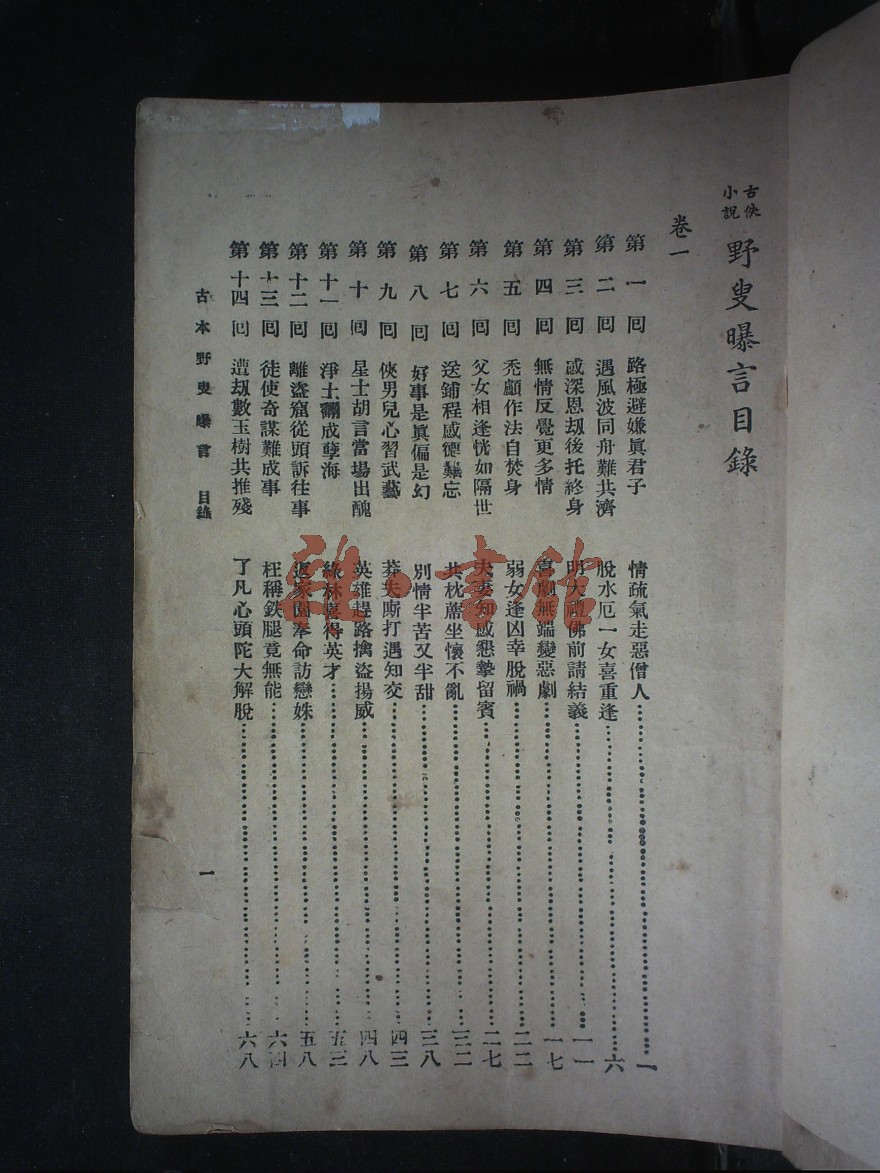 古俠小說 野叟曝言目錄
卷一
第一回 路極避嫌眞君子 情疏氣走惡僧人 一
第二回 遇風波同舟難共濟 脫水厄一女喜重逢 六
第三回 感深恩刼後托終身 明大禮佛前請結義 一一
第四回 無情反覺更多情 喜劇無端變惡劇 一七
第五回 禿顱作法自焚身 弱女逢凶幸脫禍 二二
第六回 父女相逢恍如隔世 夫妻知感懇摯留賓 二七
第七回 送鋪程感德難忘 共枕蓆坐懷不亂 三二
第八回 好事是眞偏是幻 別情半苦又半甜 三八
第九回 俠男兒心習武藝 莽夫廝打遇知交 四三
第十回 星士胡言當場出醜 英雄趕路擒盜揚威 四八
第十一回 淨土翻成孽海 綠林喜得英才 五三
第十二回 離盜窟從頭訴往事 返家園奉命訪戀姝 五八
第十三回 徒使奇謀難成事 枉稱鉄腿竟無能 六四
第十四回 遭刼數玉樹共推殘 了凡心頭陀大解脫 六八
古本野叟曝言 目錄 一
雅書館